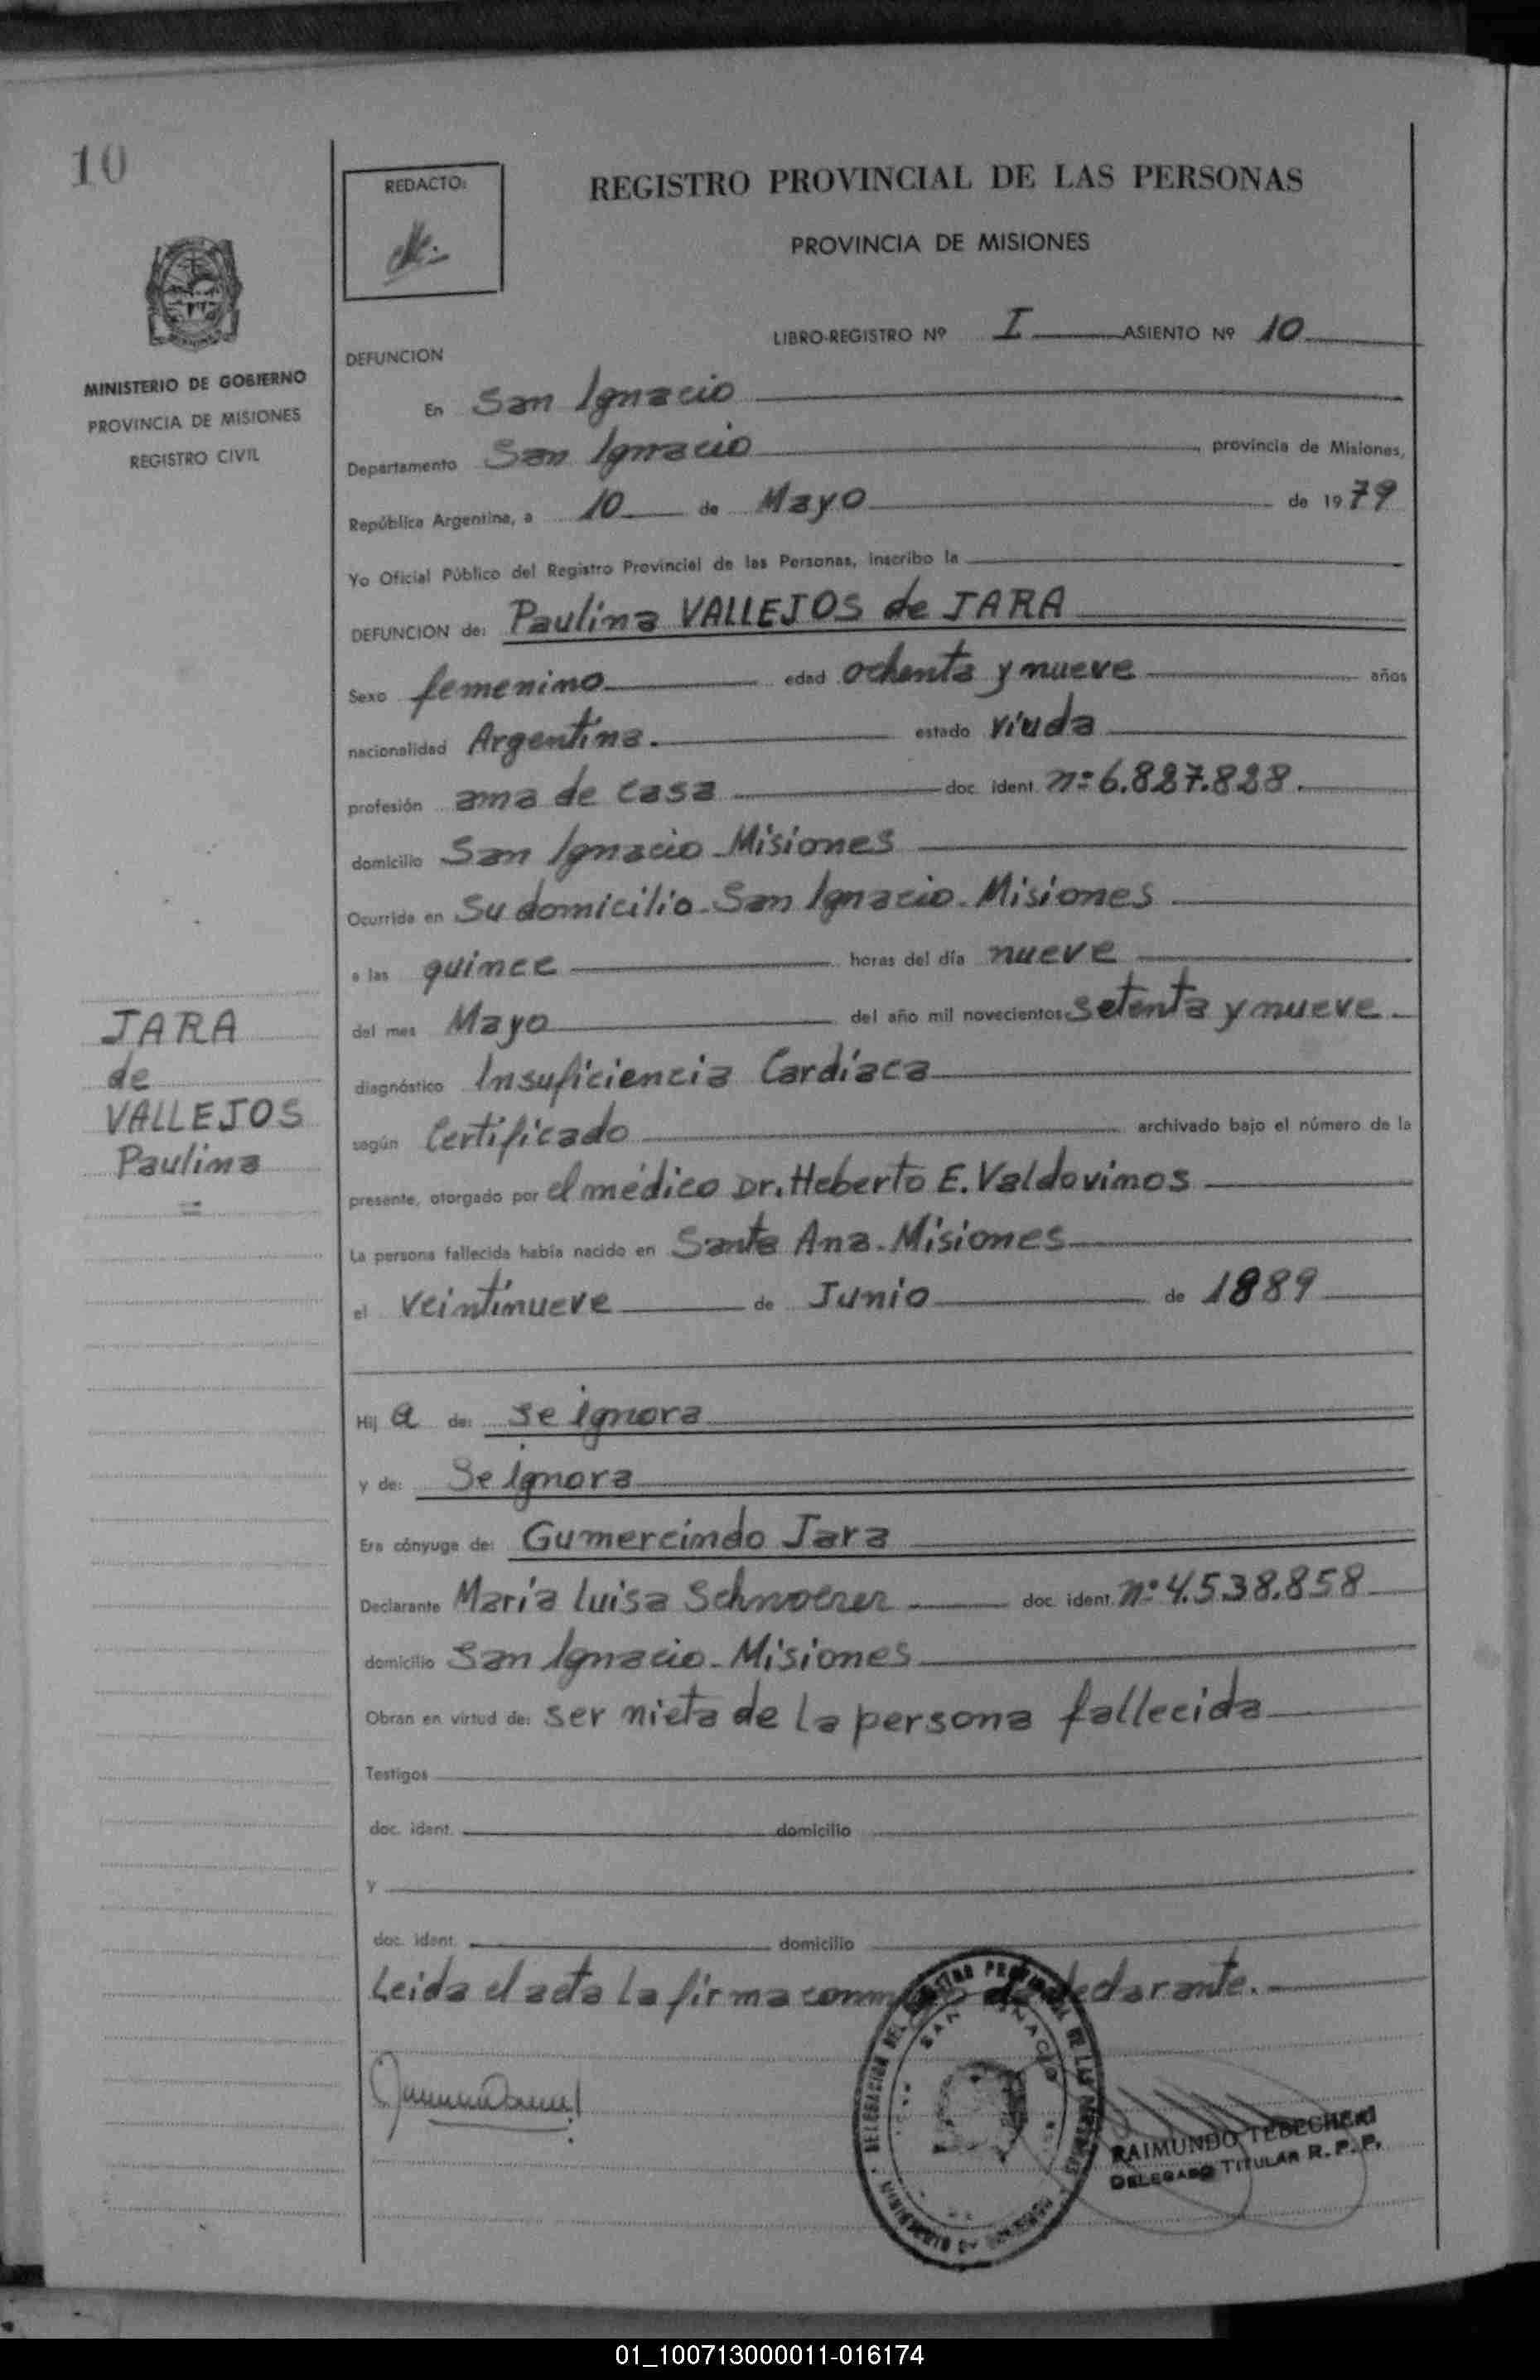 10
REDACTO:
REGISTRO PROVINCIAL DE LAS PERSONAS
PROVINCIA DE MISIONES
LIBRO-REGISTRO Nº I ASIENTO Nº 10
MINISTERIO DE GOBIERNO
PROVINCIA DE MISIONES
REGISTRO CIVIL
DEFUNCION
En San Ignacio
Departamento San Ignacio, provincia de Misiones,
República Argentina, a 10 de Mayo de 1979
Yo Oficial Público del Registro Provincial de las Personas, inscribo la
DEFUNCION de: Paulina VALLEJOS de JARA
Sexo femenino edad ochenta y nueve años
nacionalidad Argentina. estado viuda
profesión ama de casa doc. ident. nº 6.827.828.
domicilio San Ignacio - Misiones
Ocurrida en Su domicilio - San Ignacio - Misiones
a las quince horas del día nueve
del mes Mayo del año mil novecientos setenta y nueve
diagnóstico Insuficiencia Cardíaca
según Certificado archivado bajo el número de la
presente, otorgado por el médico Dr. Heberto E. Valdovinos
La persona fallecida había nacido en Santa Ana - Misiones
el veintinueve de Junio de 1889
JARA
de
VALLEJOS
Paulina
=
Hij a de: se ignora
y de: Se ignora
Era cónyuge de: Gumercindo Jara
Declarante María Luisa Schnoerer doc. ident. nº 4.538.858
domicilio San Ignacio - Misiones
Obran en virtud de: ser nieta de la persona fallecida
Testigos
doc. ident. domicilio
y
doc. ident. domicilio
Leida el acta la firma conmigo la declarante.
DELEGACION DEL REGISTRO PROVINCIAL DE LAS PERSONAS
SAN IGNACIO
MINISTERIO DE GOBIERNO
RAIMUNDO TEDECHERI
DELEGADO TITULAR R. P. P.
01_100713000011-016174